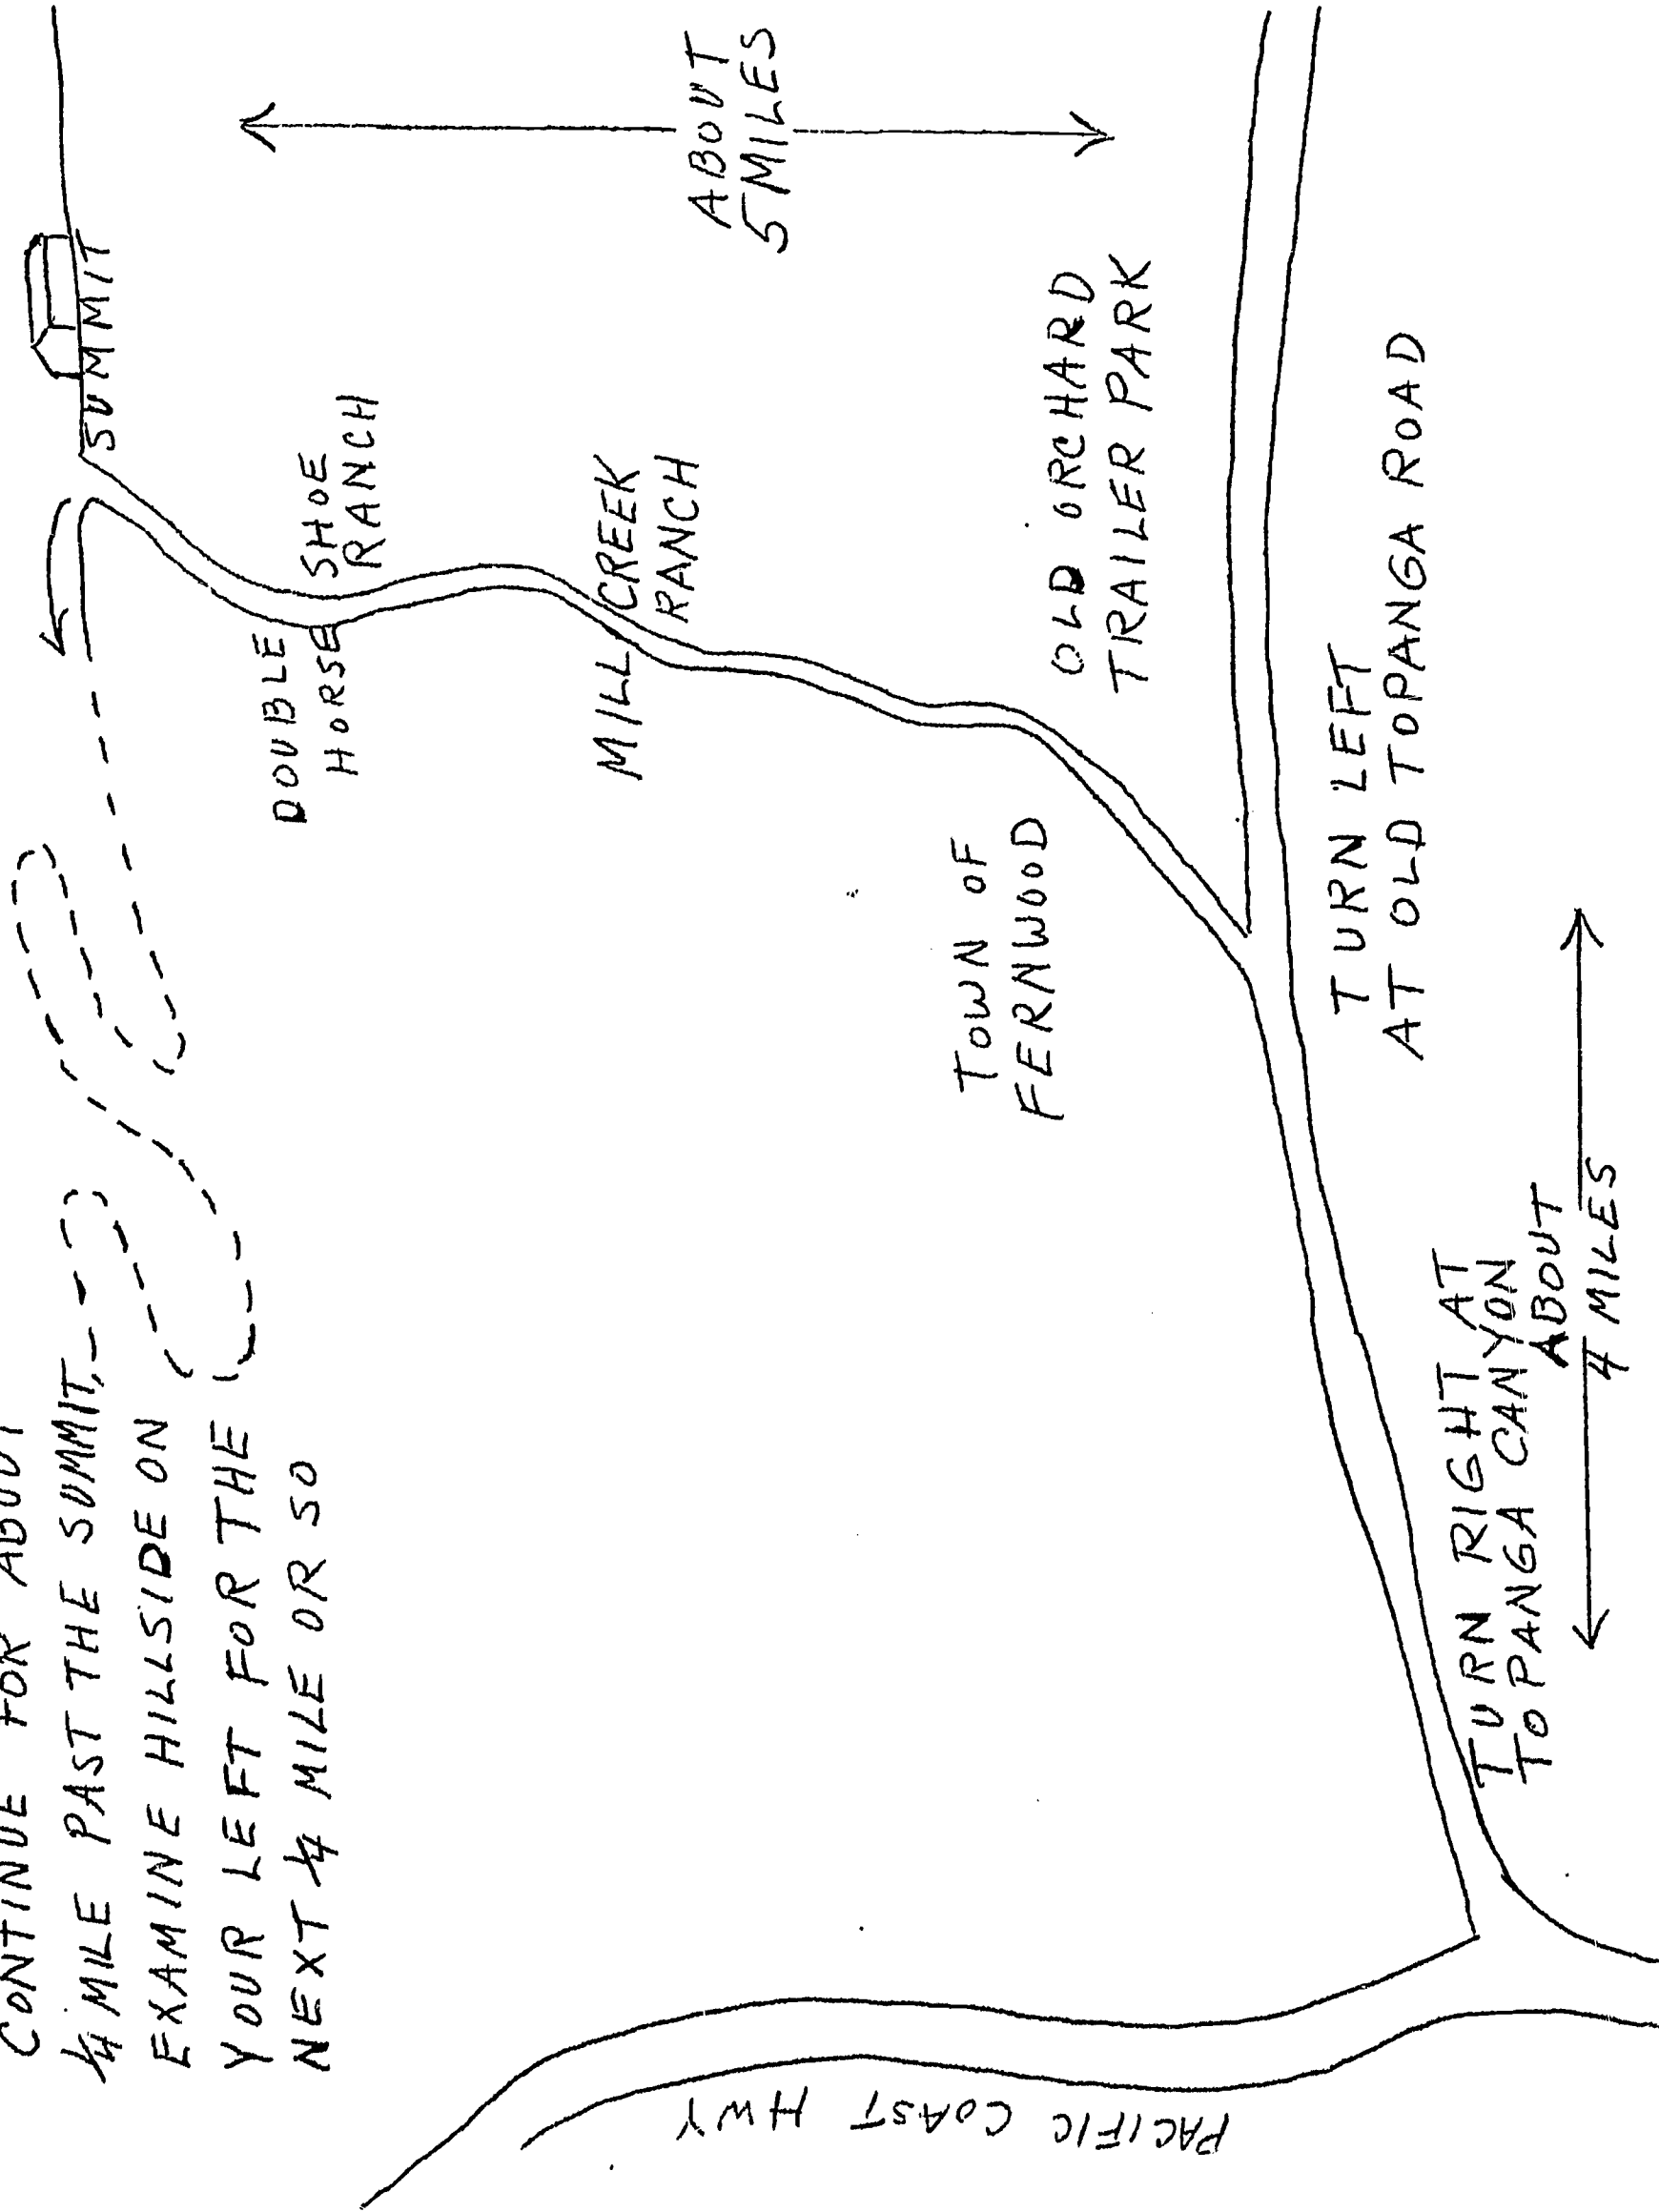 CONTINUE FOR ABOUT
1/4 MILE PAST THE SUMMIT,
EXAMINE HILLSIDE ON
YOUR LEFT FOR THE
NEXT 1/4 MILE OR SO
SUMMIT
DOUBLE SHOE
HORSE RANCH
MILL CREEK
RANCH
ABOUT
5 MILES
TOWN OF
FERNWOOD
OLD ORCHARD
TRAILER PARK
TURN LEFT
AT OLD TOPANGA ROAD
TURN RIGHT AT
TOPANGA CANYON
ABOUT
4 MILES
PACIFIC COAST HWY